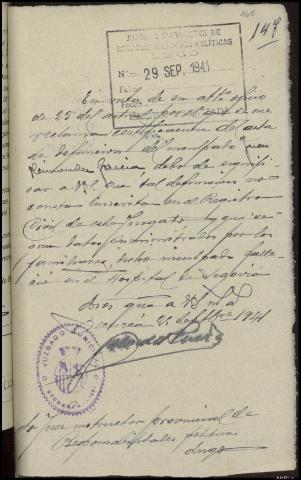 165
147
JUZGADO INSTRUCTOR DE
RESPONSABILIDADES POLÍTICAS
LUGO
Núm.
29 SEP. 1941
Folio
En vista de su atto oficio
de 23 del actual por el que se me
reclama certificación del acta
de defunción del inculpado Juan
Fernandez Garcia debo de signifi-
car a V.S. que tal defunción no
consta inscrita en el Registro
Civil de este Juzgado y que se-
gun datos suministrados por los
familiares, dicho inculpado falle-
ció en el Hospital de Segovia
Dios que a V.S. m. a.
Becerreá 1941
JUZGADO MUNICIPAL
BECERREA
Sr. Juez instructor provincial de
Responsabilidades politicas
Lugo